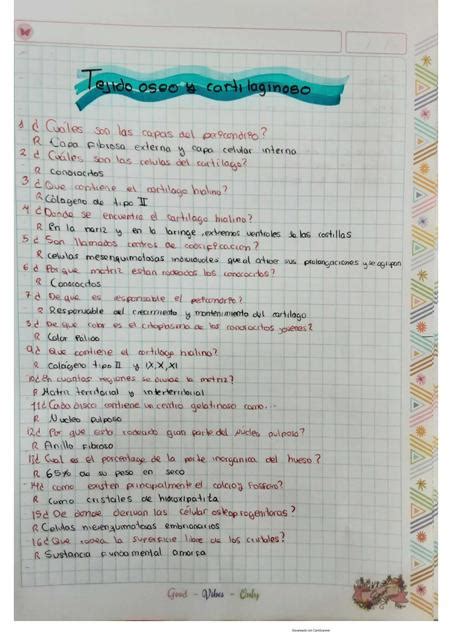 Tejido oseo y cartilaginoso
1 ¿ Cuales son las capas del pericondrio?
R Capa Fibrosa externa y capa celular interna
2 ¿ Cuales son las celulas del cartilago?
R Conorocitos
3 ¿ Que contiene el cartilago hialino?
R Colageno de tipo II
4 ¿ Donde se encuentra el cartilago hialino?
R En la nariz y en la laringe, extremos ventrales de las costillas
5 ¿ Son llamados centros de condrificacion?
R celulas mesenquimatosas individuales que al atraer sus prolongaciones y se agrupan
6 ¿ Por que matriz estan rodeados los conorocitos?
R Conorocitos
7 ¿ De que es responsable el pericondrio?
R Responsable del crecimiento y mantenimiento del cartilago
8 ¿ De que color es el citoplasma de los conorocitos jovenes?
R Color Palido
9 ¿ Que contiene el cartilago hialino?
R colageno tipo II y IX, X, XI
10 ¿ En cuantas regiones se divide la matriz?
R Matriz territorial y interterritorial
11 ¿ Cada disco contiene un centro gelatinoso como...
R Nucleo pulposo
12 ¿ Por que esta rodeado gran parte del nucleo pulposo?
R Anillo Fibroso
13 ¿ Cual es el porcentage de la parte inorganica del hueso?
R 65% de su peso en seco
14 ¿ como existen principalmente el calcio y Fosforo?
R como cristales de hidroxipatita
15 ¿ De donde derivan las célular osteoprogenitoras?
R Celulas mesenquimatosas embrionarios
16 ¿ Que rodea la superficie libre de los cristales?
R Sustancia Fundamental amorfa
Good - Vibes - Only
Escaneado con CamScanner